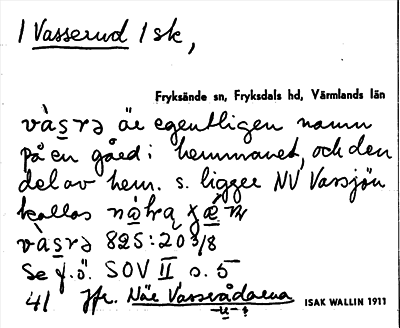 1 Vasserud 1 sk,
Fryksände sn, Fryksdals hd, Värmlands län
är egentligen namn
på en gård i hemmanet, och den
del av hem. s. ligger NV Varsjön
kallas
825: 20 3/8
Se f.ö. SOV II s. 5
41 Jfr. När Vasserådarna
ISAK WALLIN 1911